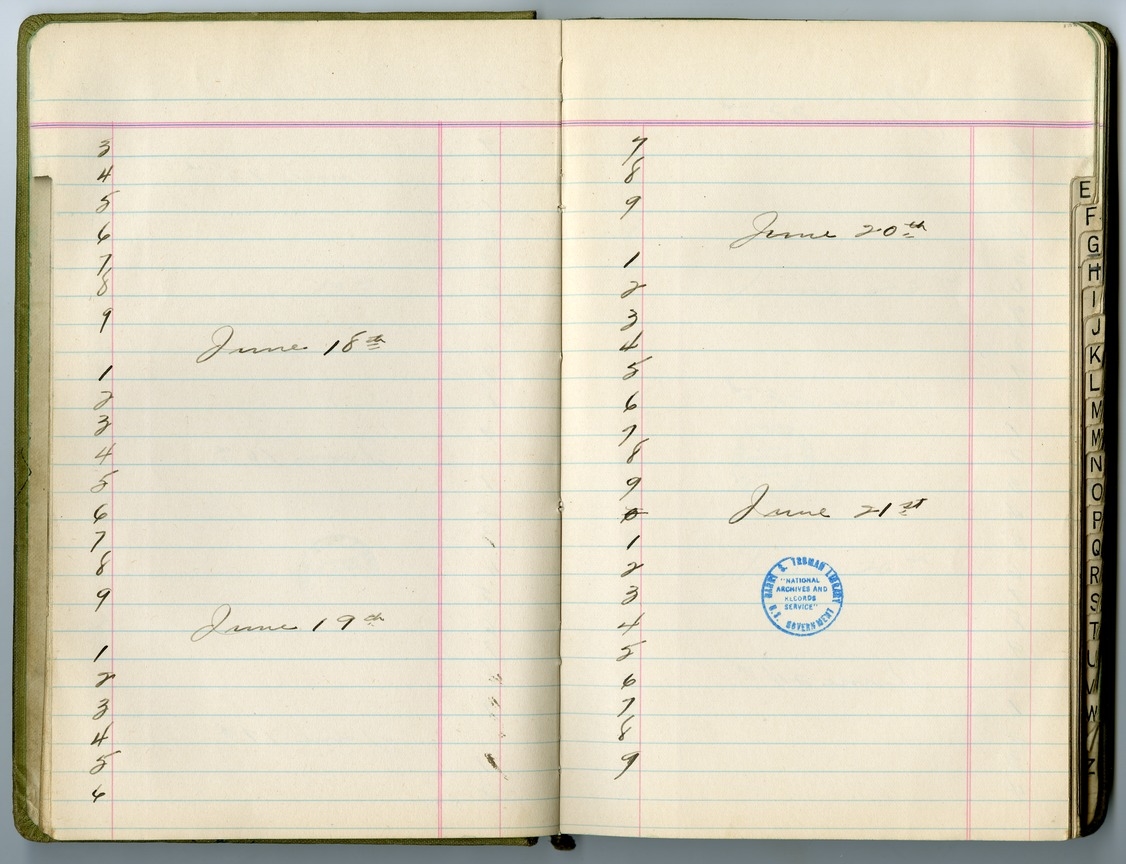 3
4
5
6
7
8
9
June 18th
1
2
3
4
5
6
7
8
9
June 19th
1
2
3
4
5
6
7
8
9
June 20th
1
2
3
4
5
6
7
8
9
June 21st
1
2
3
4
5
6
7
8
9
HARRY S. TRUMAN LIBRARY
"NATIONAL
ARCHIVES AND
RECORDS
SERVICE"
U.S. GOVERNMENT
E
F
G
H
I
J
K
L
M
Mc
N
O
P
Q
R
S
T
U
V
W
Z